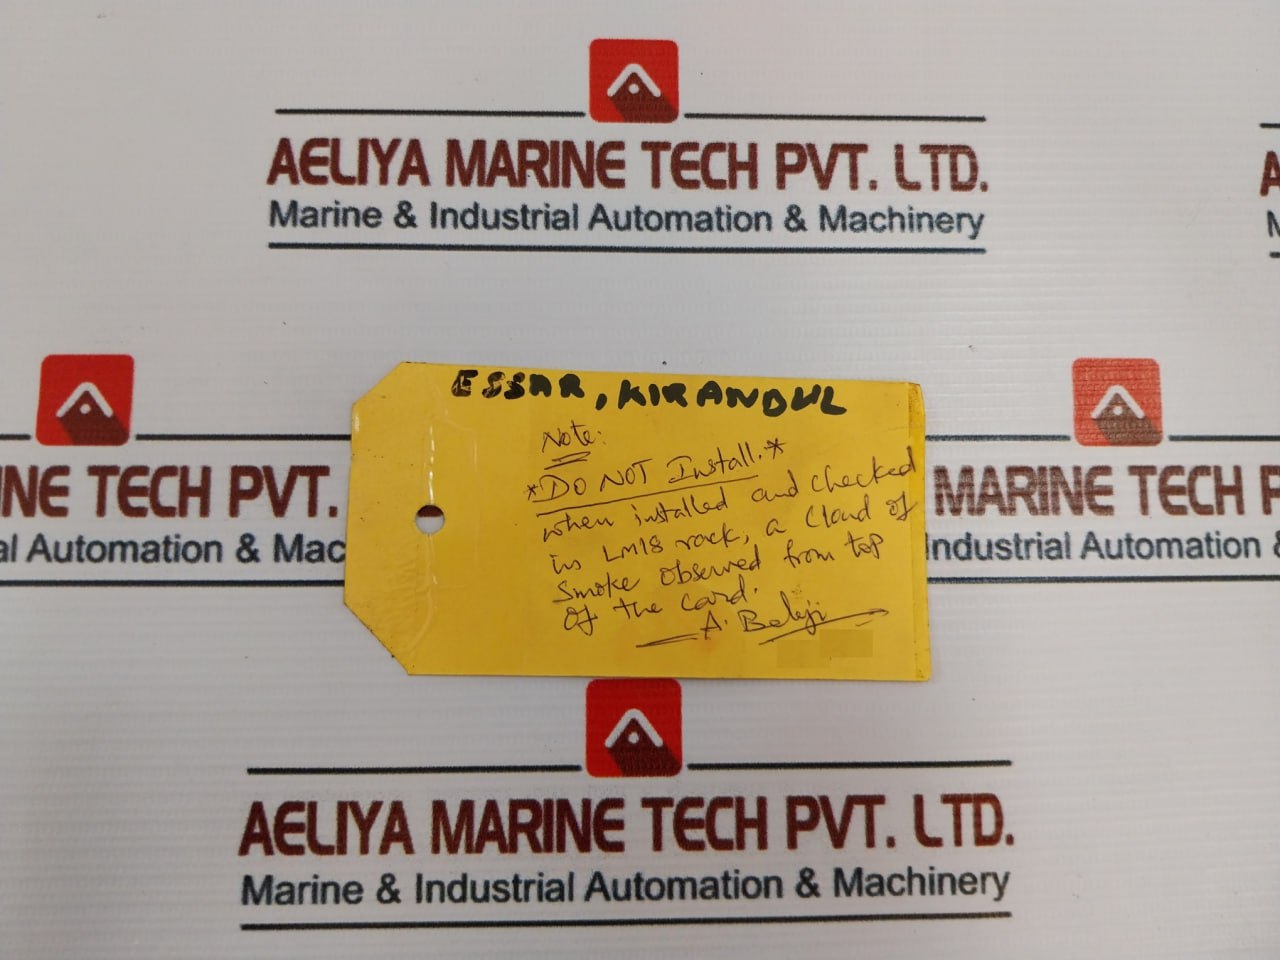 AELIYA MARINE TECH PVT. LTD.
Marine & Industrial Automation & Machinery
A
M
INE TECH PVT.
al Automation & Mac
ESSAR, KIRANDUL
Note:
*DO NOT Install.*
when installed and checked
in LM18 rack, a cloud of
smoke observed from top
of the card.
A. Balaji
MARINE TECH P
Industrial Automation &
AELIYA MARINE TECH PVT. LTD.
Marine & Industrial Automation & Machinery